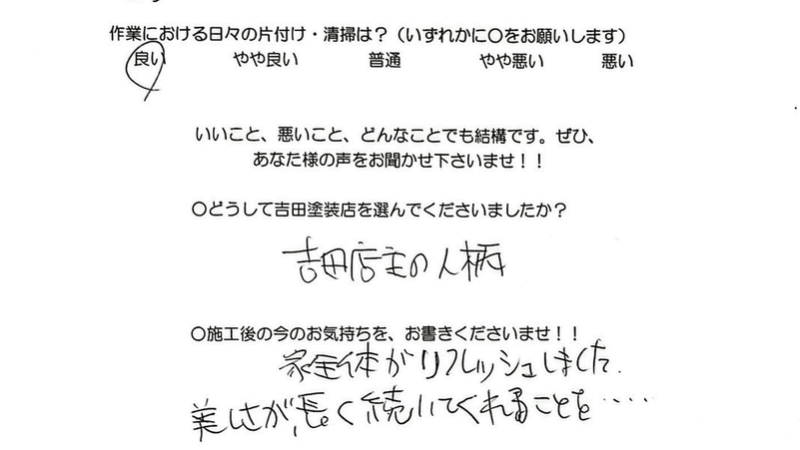 作業における日々の片付け・清掃は？（いずれかに〇をお願いします）
良い やや良い 普通 やや悪い 悪い
いいこと、悪いこと、どんなことでも結構です。ぜひ、
あなた様の声をお聞かせ下さいませ！！
〇どうして吉田塗装店を選んでくださいましたか？
吉田店主の人柄
〇施工後の今のお気持ちを、お書きくださいませ！！
家全体がリフレッシュしました.
美しさが、長く続いてくれることを‥‥